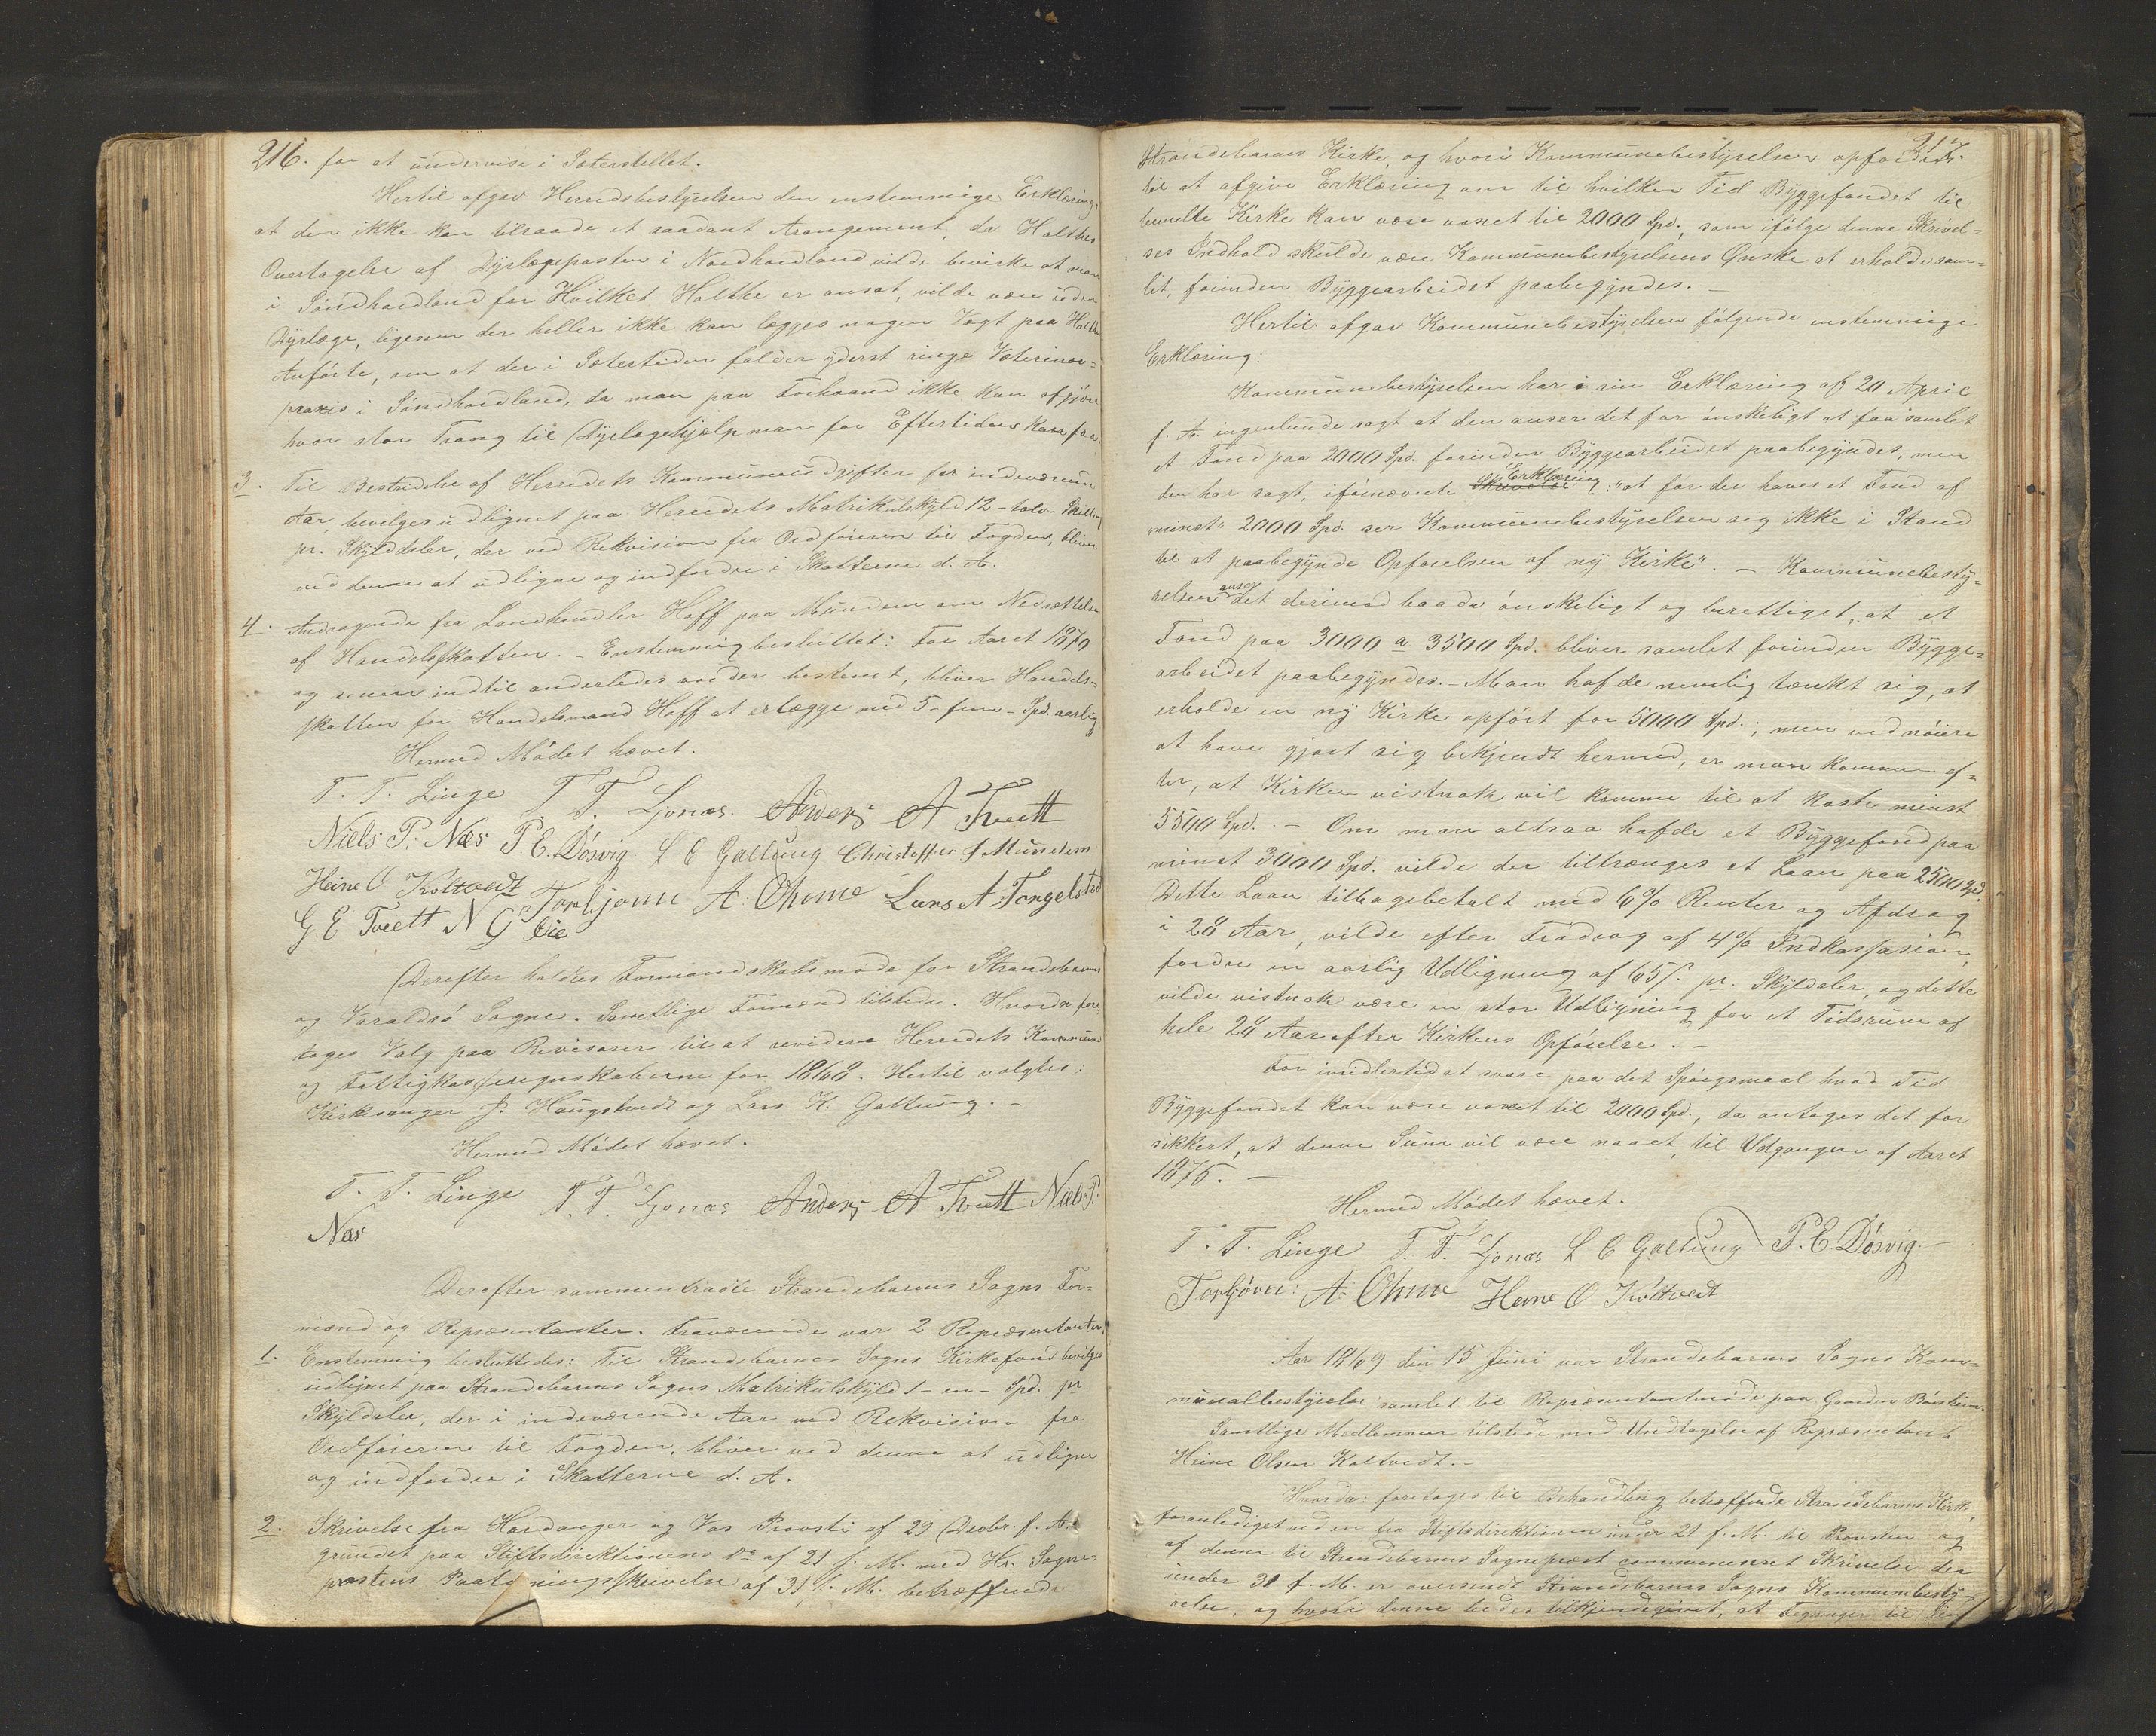 216. for at undervise i Sæterstellet.
Hertil afgav Herredsbestyrelsen den enstemmige Erklæring,
at den ikke kan tilraade et saadant Arangement, da Halthes
Overtagelse af Dyrlægeposten i Nordhordland vilde bevirke at man
i Søndhordland for Hvilket Holthe er ansat, vilde være uden
Dyrlæge, ligesom der heller ikke kan lægges nogen Vægt paa Holthes
Anførte, om at der i Sætertiden falder yderst ringe Veterinær-
praxis i Søndhordland, da man paa Forhaand ikke kan afgjøre
hvor stor Trang til Dyrlægehjælp man for Eftertiden kan faa.
3. Til Bestridelse af Herredets Kommuneudgifter for indeværende
Aar, bevilges udlignet paa Herredets Matrikulskyld 12 - tolv - Skilling
pr. Skylddaler, der ved Rekvision fra Ordføreren til Fogden, bliver
ved denne at udligne og indfordre i Skatterne d. A.
4. Andragende fra Landhandler Hoff paa Mundem om Nedsættelse
af Handelsskatten. - Enstemmig besluttet: For Aaret 1870
og senere indtil anderledes vorder bestemt, bliver Handels-
skatten for Handelsmand Hoff at erlægge med 5 - fem - Spd. aarlig.
Hermed Mødet hævet.
T. T. Linge T. T. Ljonæs Anders A Tvett
Niels P. Næs P. E. Døsvig L E Galtung Christoffer J Mundem
Heine O Koltvedt Torbjørn A. Ohme Lars A Torgelstad
G E Tvett N G Øie
Derefter holdtes Formandskabsmøde for Strandebarm
og Varaldsø Sogne. Samtlige Formænd tilstede. Hvorda fore-
toges Valg paa Revisorer til at revidere Herredets Kommune
og Fattigkasseregnskaberne for 1868. Hertil valgtes:
Kirkesanger J. Haugstvedt og Lars K. Galtung. -
Hermed Mødet hævet.
T. T. Linge T. T. Ljonæs Anders A Tvett Niels P.
Næs
Derefter sammentraadte Strandebarms Sogns For-
mænd og Repræsentanter. Fraværende var 2 Repræsentanter.
1. Enstemmig besluttedes: Til Strandebarms Sogns Kirkefond bevilges
udlignet paa Strandebarms Sogns Matrikulskyld 1 - en - Spd. pr
Skyldaler, der i indeværende Aar ved Rekvision fra
Ordføreren til Fogden, bliver ved denne at udligne
og indfordre i Skatterne d. A.
2. Skrivelse fra Hardanger og Vos Provsti af 29 Decbr. f. A.
grundet paa Stiftsdirektionens do af 21 s. M. med Hr. Sogne-
præstens Paategningsskrivelse af 31 s. M. betræffende
217.
Strandebarms Kirke, og hvori Kommunebestyrelsen opfordres
til at afgive Erklæring om til hvilken Tid Byggefondet til
bemelte Kirke kan være voxet til 2000 Spd., som ifølge denne Skrivel-
ses Indhold skulde være Kommunebestyrelsens Ønske at erholde sam-
let, forinden Byggearbeidet paabegyndes. -
Hertil afgav Kommunebestyrelsen følgende enstemmige
Erklæring:
Kommunebestyrelsen har i sin Erklæring af 20 April
f. A. ingenlunde sagt at den anser det for ønskeligt at faa samlet
et Fond paa 2000 Spd. forinden Byggearbeidet paabegyndes, men
den har sagt, ifornævnte Skrivelse Erklæring: "at før der haves et Fond af
minst" 2000 Spd. ser Kommunebestyrelsen sig ikke i Stand
til at paabegynde Opførelsen af ny Kirke". - Kommunebesty-
relsen anser det derimod baade ønskeligt og berettiget, at et
Fond paa 3000 a 3500 Spd. bliver samlet forinden Bygge-
arbeidet paabegyndes. - Man hafde nemlig tænkt sig, at
erholde en ny Kirke opført for 5000 Spd.; men ved nøiere
at have gjort sig bekjendt hermed, er man kommen ef-
ter, at Kirken vistnok vil komme til at koste minst
5500 Spd. - Om man altsaa hafde et Byggefond paa
minst 3000 Spd. vilde der tiltrænges et Laan paa 2500 Spd.
Dette Laan tilbagebetalt med 6% Renter og Afdrag
i 28 Aar, vilde efter Fradrag af 4% Indkassasion,
fordre en aarlig Udligning af 65 s. pr. Skyldaler, og dette
vilde vistnok være en stor Udligning for et Tidsrum af
hele 28 Aar efter Kirkens Opførelse. -
For imidlertid at svare paa det Spørgsmaal hvad Tid
Byggefondet kan være voxet til 2000 Spd., da antages det for
sikkert, at denne Sum vil være naaet, til Udgangen af Aaret
1875. -
Hermed Mødet hævet.
T. T. Linge T. T. Ljonæs L E Galtung P. E. Døsvig. -
Torbjørn: A. Ohme Heine O Koltvedt
Aar 1869 den 15 Juni var Strandebarms Sogns Kom-
munalbestyrelse samlet til Repræsentantmøde paa Gaarden Børsheim.
Samtlige Medlemmer tilstede med Undtagelse af Repræsentant
Heine Olsen Koltvedt. -
Hvorda: foretoges til Behandling betræffende Strandebarms Kirke,
foranlediget ved en fra Stiftsdirektionen under 21 f. M. til Provsten og
af denne til Strandebarms Sognepræst communiceret Skrivelse der
under 31 f. M. er oversendt Strandebarms Sogns Kommunebesty-
relse, og hvori denne bedes tilkjendegivet, at Tegninger til